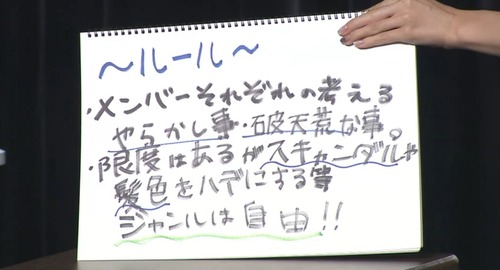 ～ルール～
・メンバーそれぞれの考える
やらかし事・破天荒な事。
・限度はあるがスキャンダルや
髪色をハデにする等
ジャンルは自由!!